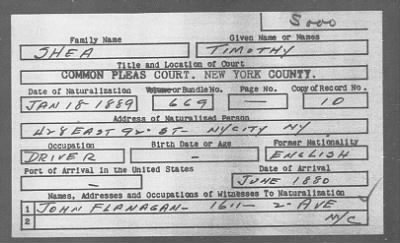 S000
Family Name Given Name or Names
SHEA TIMOTHY
Title and Location of Court
COMMON PLEAS COURT. NEW YORK COUNTY.
Date of Naturalization Volume or Bundle No. Page No. Copy of Record No.
JAN 18-1889 669 — 10
Address of Naturalized Person
428 EAST 92- ST- NYCITY NY
Occupation Birth Date or Age Former Nationality
DRIVER - ENGLISH
Port of Arrival in the United States Date of Arrival
- JUNE 1880
Names, Addresses and Occupations of Witnesses To Naturalization
1 JOHN FLANAGAN- 1611- 2- AVE
2 NYC